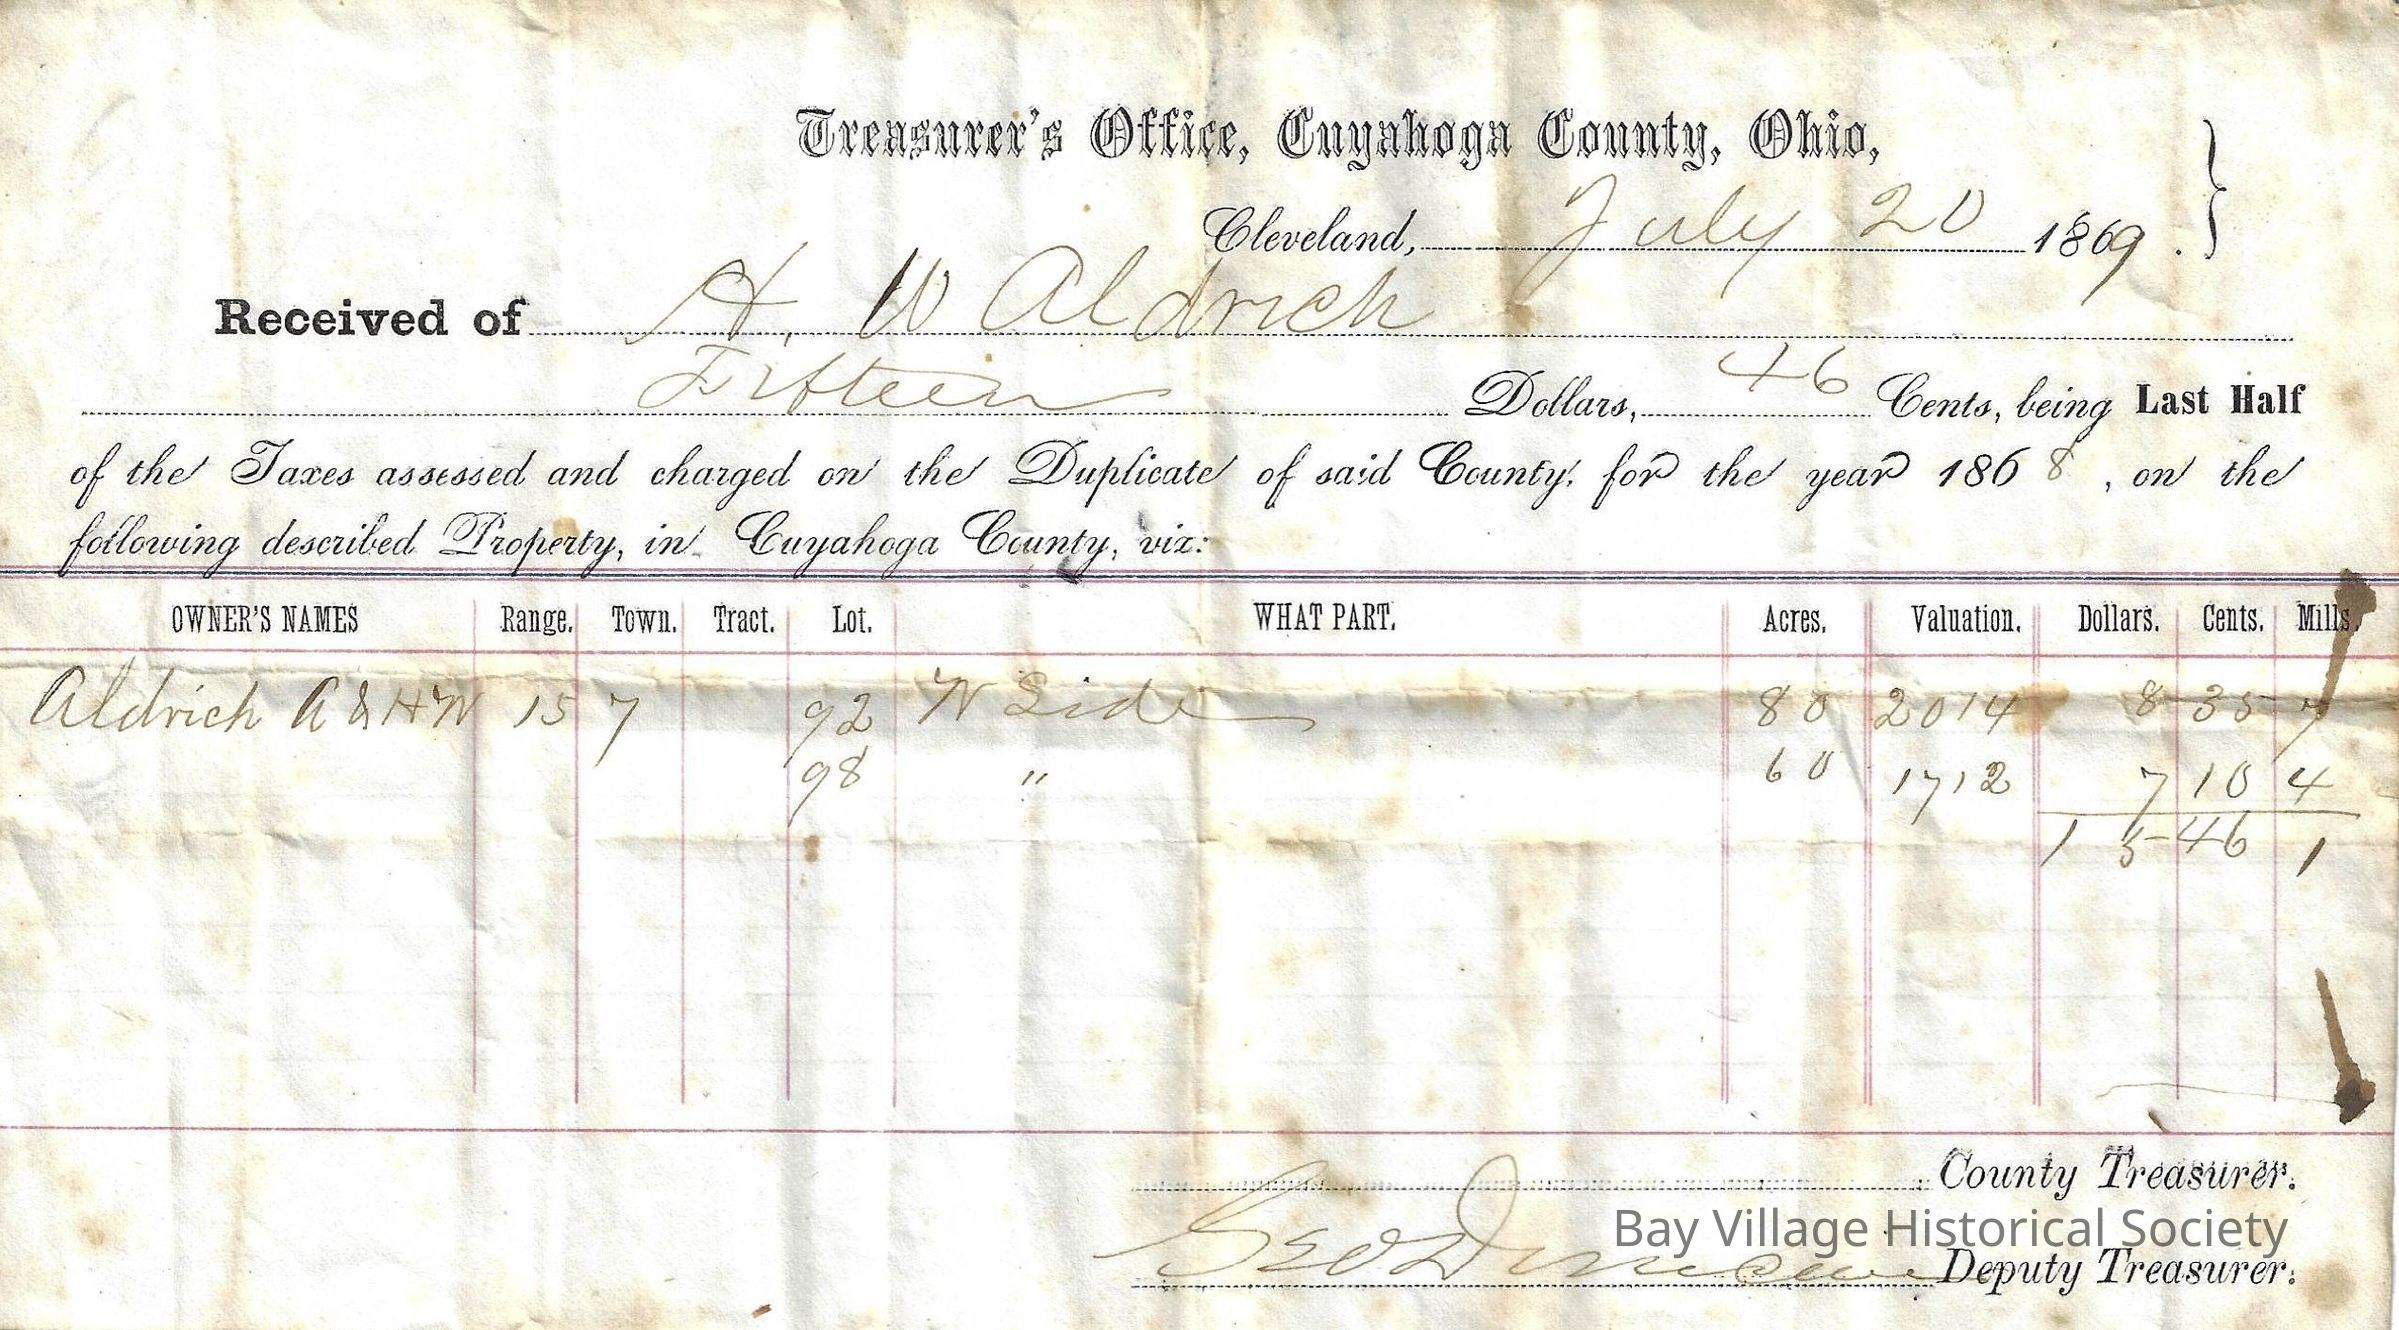 Treasurer's Office, Cuyahoga County, Ohio,
Cleveland, July 20 1869.
Received of H. W Aldrich
Fifteen Dollars, 46 Cents, being Last Half
of the Taxes assessed and charged on the Duplicate of said County, for the year 1868, on the
following described Property, in Cuyahoga County, viz:
OWNER'S NAMES Range. Town. Tract. Lot. WHAT PART. Acres. Valuation. Dollars. Cents. Mills.
Aldrich A & H W 15 7 92 N Side 80 2014 8 35 7
98 " 60 1712 7 10 4
15 46 1
County Treasurer.
Bay Village Historical Society
Geo Deputy Treasurer.